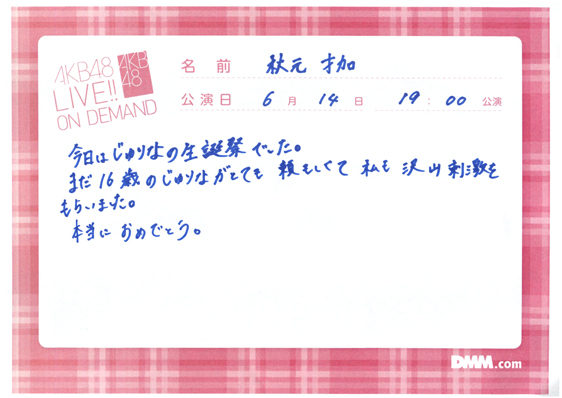 AKB48
LIVE!!
ON DEMAND
AKB
48
名前 秋元 才加
公演日 6月 14日 19:00 公演
今日はじゅりなの生誕祭でした。
まだ16歳のじゅりながとても 頼もしくて 私も 沢山刺激を
もらいました。
本当に おめでとう。
DMM.com